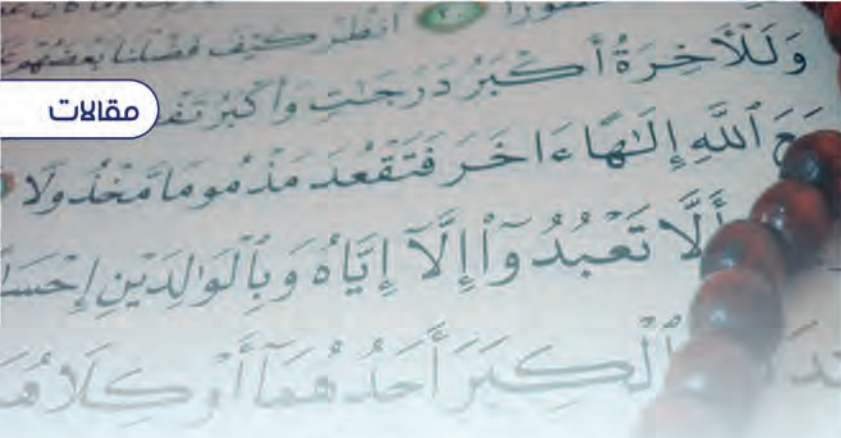 ٢٠ ٱنظُرْ كَيْفَ فَضَّلْنَا بَعْضَهُمْ
وَلَلْأَخِرَةُ أَكْبَرُ دَرَجَٰتٍ وَأَكْبَرُ
مقالات
ٱللَّهِ إِلَٰهًا ءَاخَرَ فَتَقْعُدَ مَذْمُومًا مَّخْذُولًا
أَلَّا تَعْبُدُوٓا۟ إِلَّآ إِيَّاهُ وَبِٱلْوَٰلِدَيْنِ
ٱلْكِبَرَ أَحَدُهُمَآ أَوْ